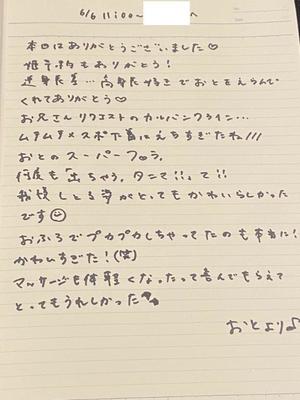 6/6 11:00〜 へ
本日はありがとうございました♡
姫予約もありがとう!
逆身長差…高身長好きでおとをえらんで
くれてありがとう♡
お兄さんリクエストのカルバンクライン…
ムチムチメスポ下着にえちすぎたね!!!
おとのスーパーフ○ラ。
何度も「出ちゃう、タンマ!!」って!!
我慢しとる姿がとってもかわいらしかった
です☺
おふろでプカプカしちゃってたのも本当に!
かわいすぎた!(笑)
マッサージも体軽くなったって喜んでもらえて
とってもうれしかった
おとより♪